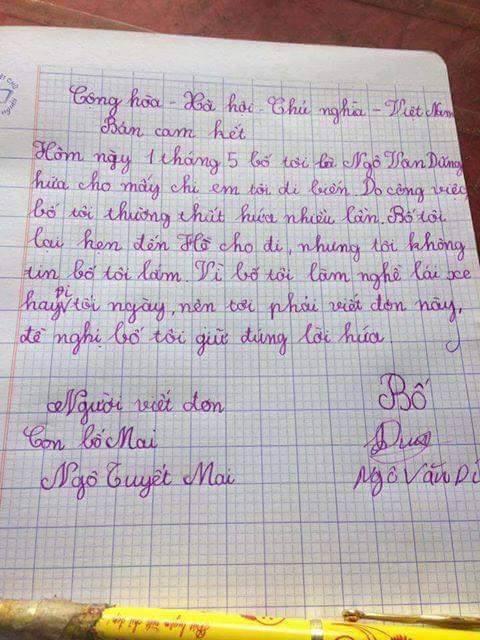 Công hòa - Xã hôi - Chủ nghĩa - Việt Nam
Bản cam kết
Hôm nay 1 tháng 5 bố tôi là Ngô Văn Dũng
hứa cho mấy chi em tôi đi biển. Do công việc
bố tôi thường thất hứa nhiều lần. Bố tôi
lại hẹn đến Hè cho đi, nhưng tôi không
tin bố tôi lắm. Vì bố tôi làm nghề lái xe
hay đi tối ngày, nên tôi phải viết đơn này,
đề nghị bố tôi giữ đúng lời hứa
Người viết đơn
Bố
Con bố Mai
Ngô Tuyết Mai
Ngô Văn